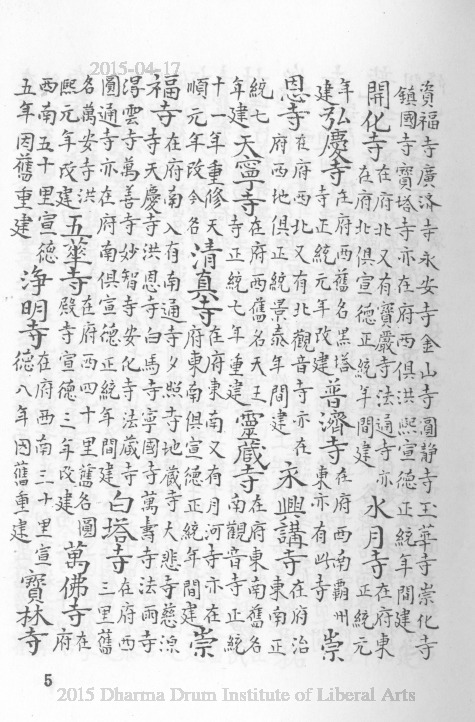 2015-04-17
資福寺廣濟寺永安寺金山寺圓靜寺玉華寺崇化寺
鎮國寺寶塔寺亦在府西俱洪熙宣德正統年間建
開化寺
在府北又有寶嚴寺法通寺亦
在府北俱宣德正統年間建
水月寺
在府東
正統元
年
建
弘慶寺
在府西舊名黑塔
寺正統元年改建
普濟寺
在府西南霸州
東亦有此寺
崇
恩寺
在府西北又有北觀音寺亦在
府西地俱正統景泰年間建
永興講寺
在府治
東南正
統七
年建
天寧寺
在府西舊名天王
寺正統七年重建
靈藏寺
在府東南舊名
南觀音寺正統
十一年重修天
順元年改今名
清真寺
在府東南又有月河寺亦在
府東南俱宣德正統年間建
崇
福寺
在府南又有南通寺夕照寺地藏寺大悲寺慈源
寺天慶寺洪恩寺白馬寺寧國寺萬壽寺法兩寺
淂雲寺萬善寺妙智寺安化寺法藏寺
圓通寺亦在府南俱宣德正統年間建
白塔寺
在府西
三里舊
名萬安寺洪
熙元年改建
五華寺
在府西四十里舊名圓
殿寺宣德三年改建
萬佛寺
在
府
西南五十里宣德
五年因舊重建
淨明寺
在府西南三十里宣
德八年因舊重建
寶林寺
5
2015 Dharma Drum Institute of Liberal Arts